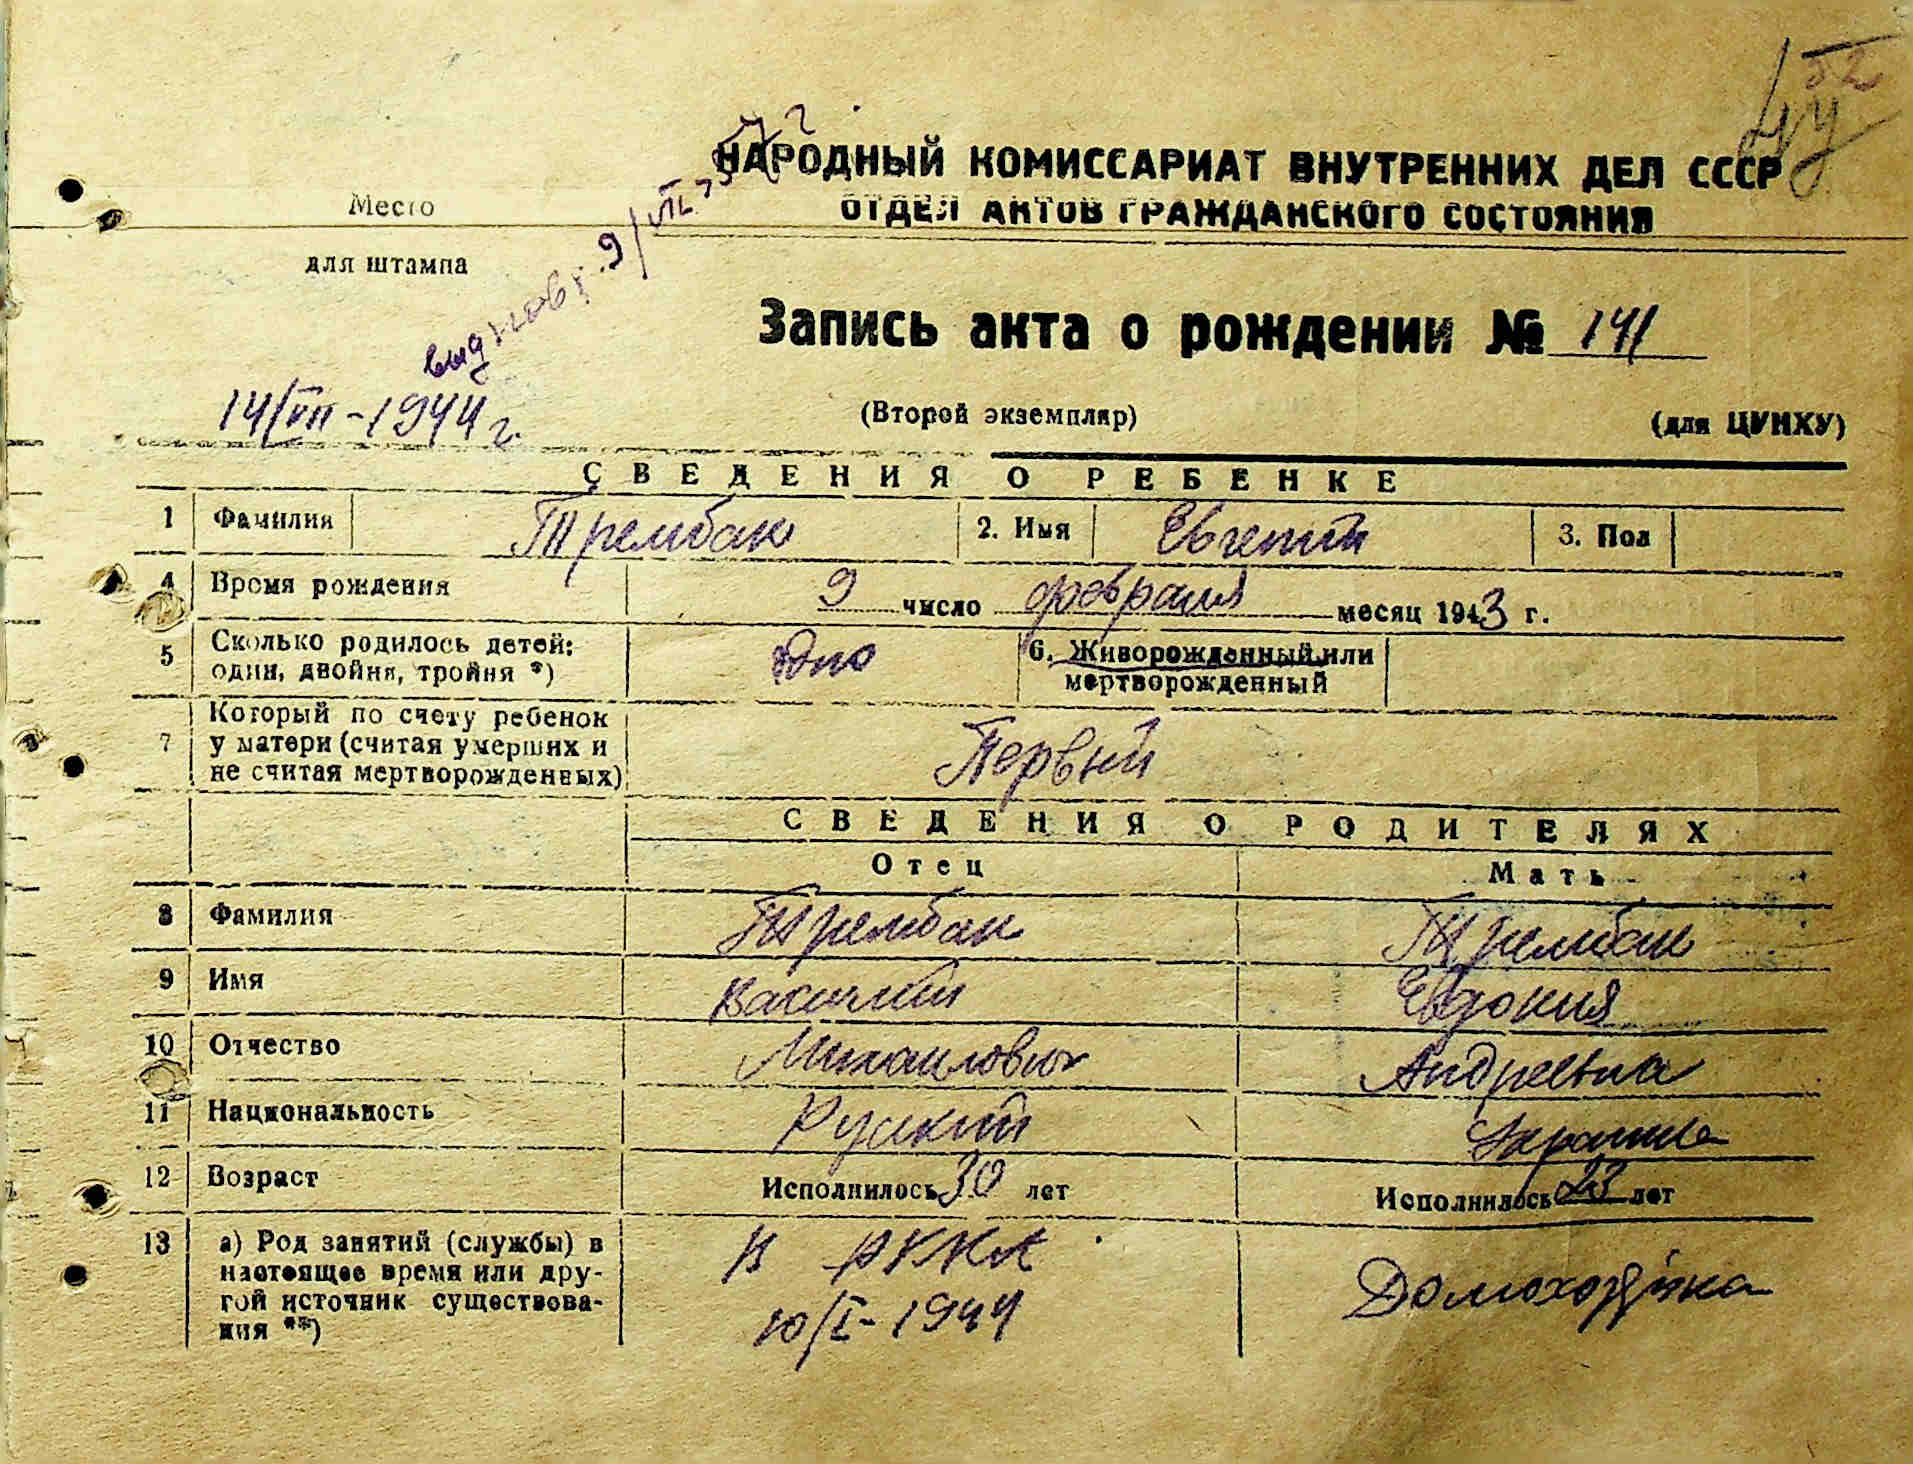 52
НАРОДНЫЙ КОМИССАРИАТ ВНУТРЕННИХ ДЕЛ СССР
ОТДЕЛ АКТОВ ГРАЖДАНСКОГО СОСТОЯНИЯ
Место
для штампа
9/VII-
14/VII-1944 г.
Запись акта о рождении № 141
(Второй экземпляр)
(для ЦУНХУ)
СВЕДЕНИЯ О РЕБЕНКЕ
1 Фамилия Трембак 2. Имя Евгений 3. Пол
4 Время рождения 9 число февраля месяц 1943 г.
5 Сколько родилось детей: один, двойня, тройня *) Дно 6. Живорожденный или мертворожденный
7 Который по счету ребенок у матери (считая умерших и не считая мертворожденных) Первый
СВЕДЕНИЯ О РОДИТЕЛЯХ
Отец Мать
8 Фамилия Трембак Трембак
9 Имя Василий Евдокия
10 Отчество Михаилович Андреевна
11 Национальность Руский
12 Возраст Исполнилось 30 лет Исполнилось 23 лет
13 а) Род занятий (службы) в настоящее время или дру-
гой источник существова-
ния **)
В РККА
10/I-1944
Домохозяйка